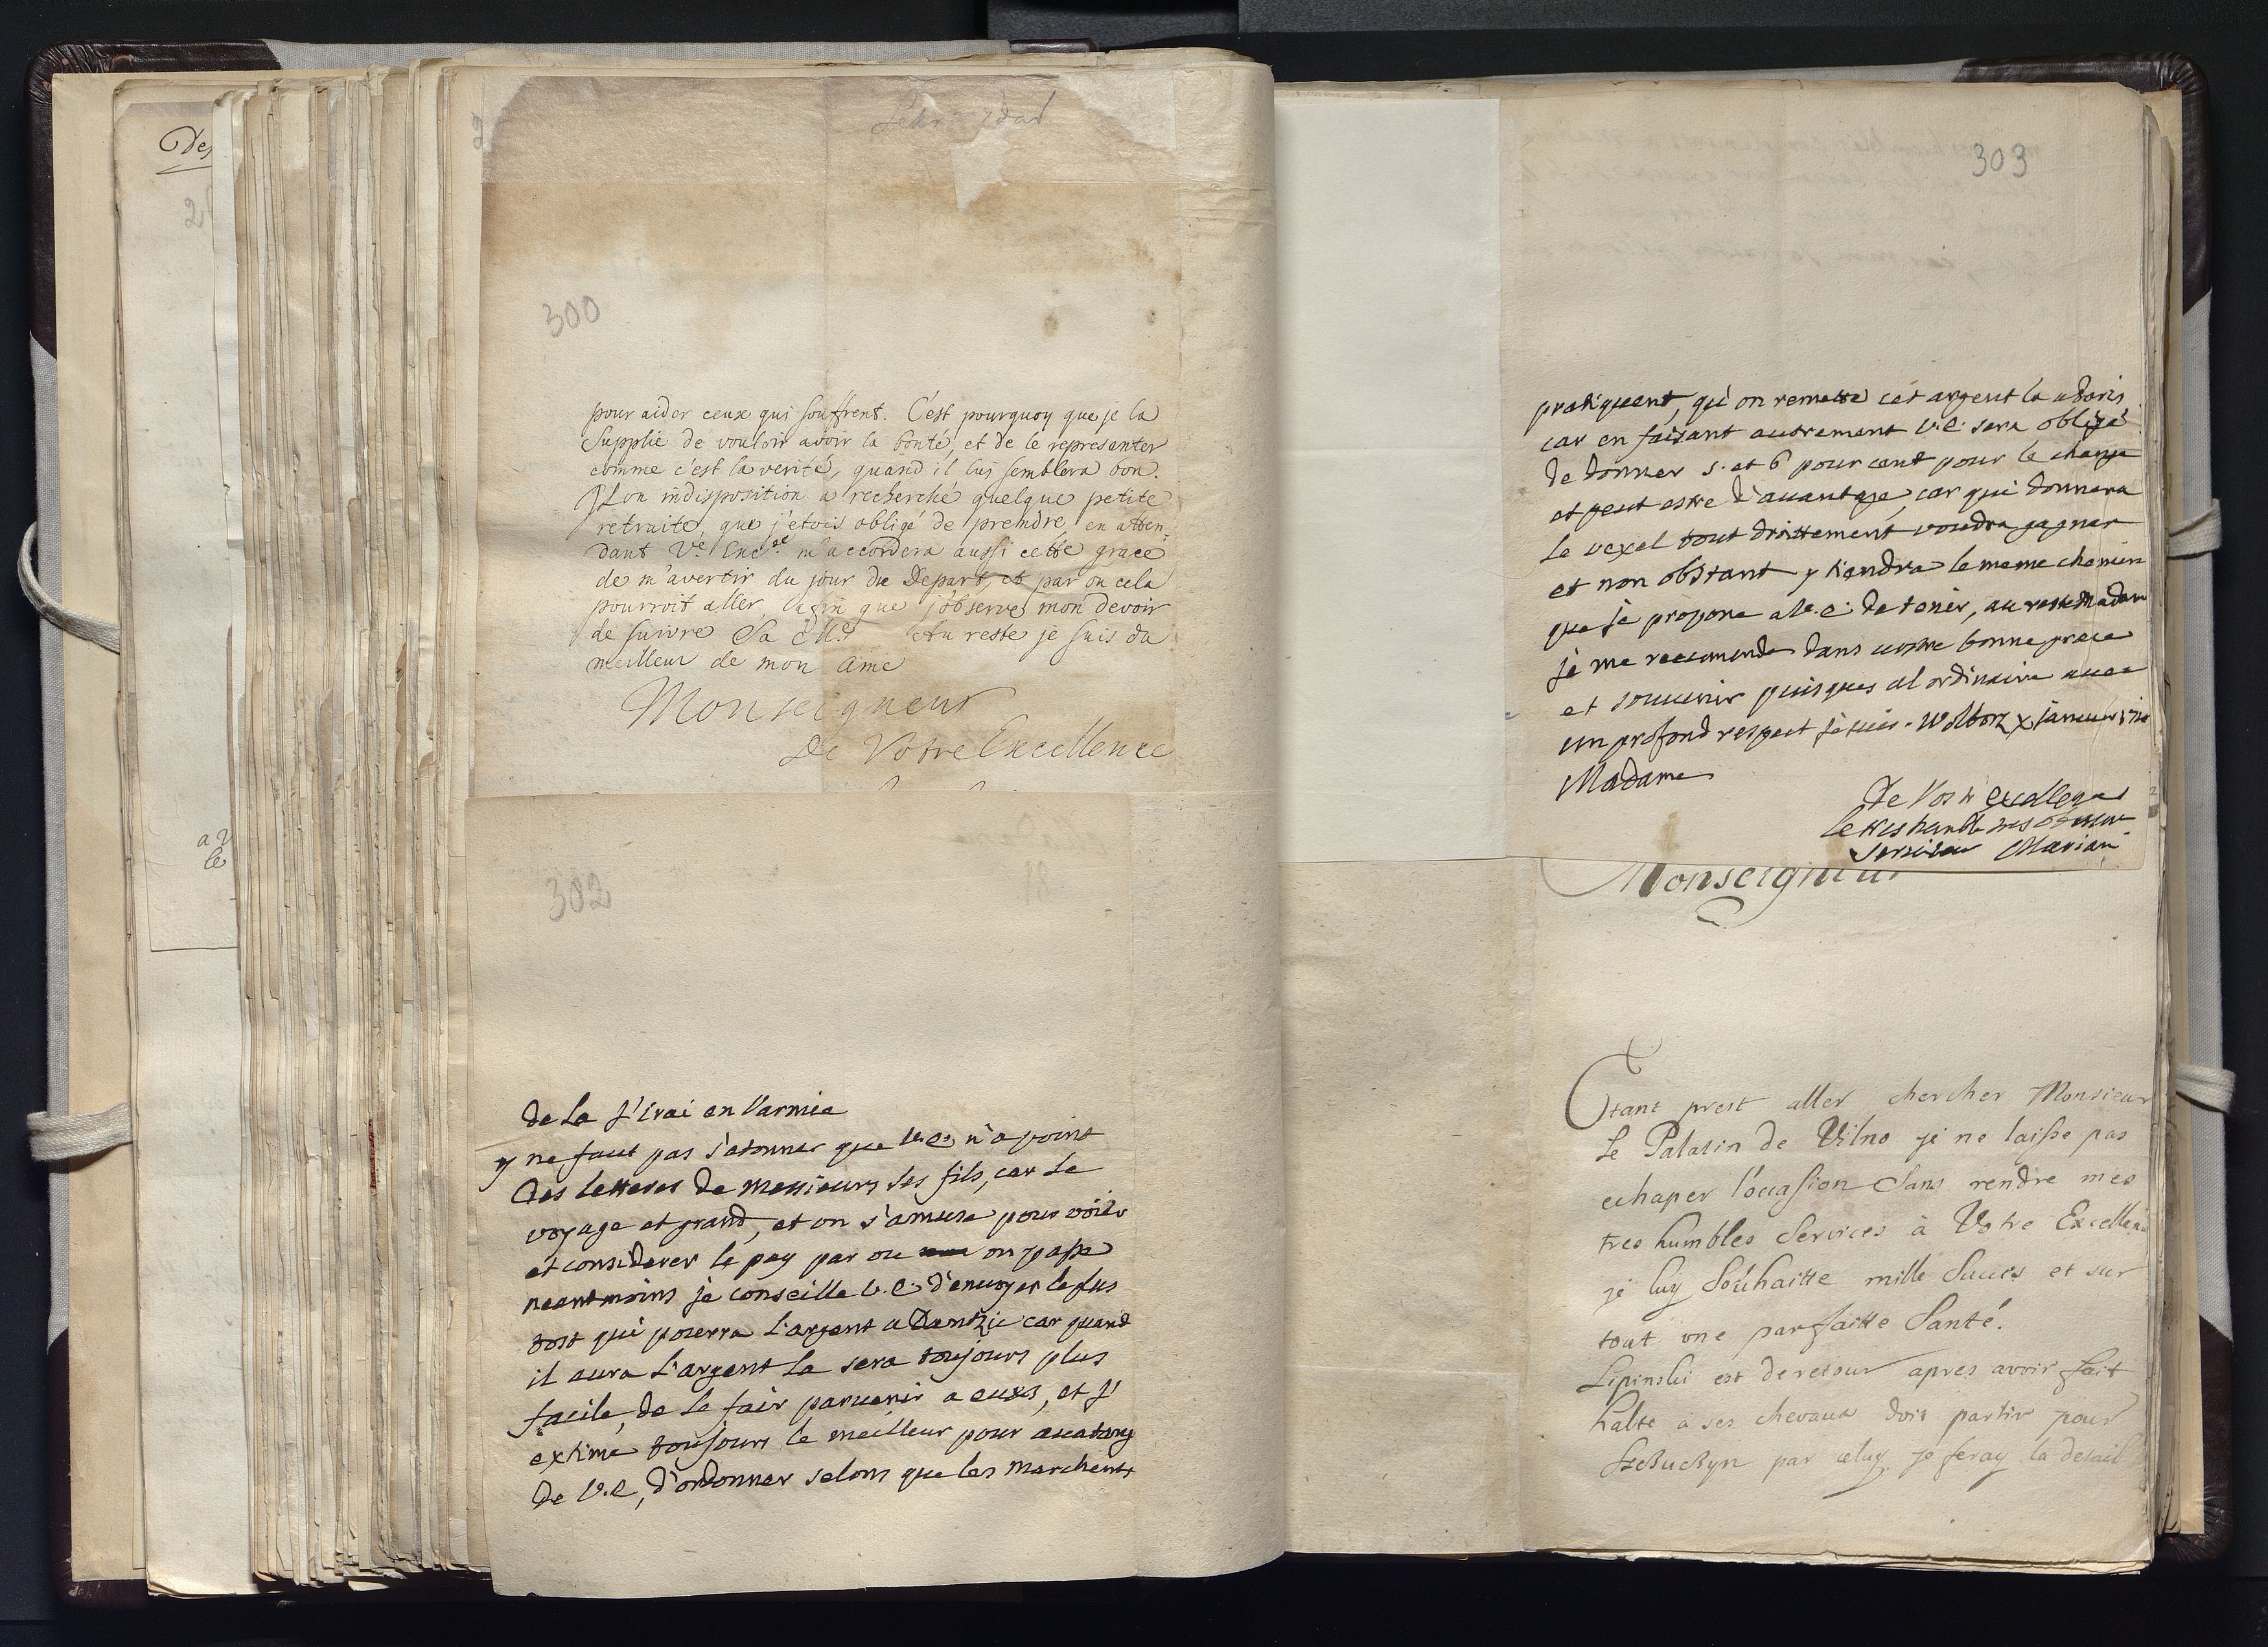 Des
2
a v
le
300
pour aider ceux qui souffrent. C'est pourquoy que je la
Supplie de vouloir avoir la bonté, et de le representer
comme c'est la verité, quand il luy semblera bon.
Mon indisposition a recherché quelque petite
retraite, que j'etois obligé de prendre en atten-
dant Ve. Exce. m'accordera aussi cette grace
de m'avertir du jour du Depart, et par ou cela
pourroit aller, afin que j'observe mon devoir
de suivre Sa Mté. Au reste je suis du
meilleur de mon ame
Monseigneur
De Votre Excellence
302
de la j'irai en Varmie
y ne faut pas s'atonner que V.E. n'a point
des letteres de messieurs ses fils, car le
voyage et grand, et on s'amuse pour voir
et considerer le pay par ou on passe
neantmoins je conseille V.E. d'envoyer le plus
tost qui pouerra l'argent a Dantzic car quand
il aura l'argent la sera toujours plus
facile, de le fair parvenir a euxs, et j'
extime toujours le meilleur pour avatang
de V.E, d'ordonner selons que les marchents
303
pratiquent, qu'on remette cet argent la a Paris
car en faisant autrement V.E. sera obligé
de donner 5. et 6 pour cent pour le change
et peut estre d'avantage, car qui donnera
le vexel tout droittement voudra gagner
et non obstant y tiendra le meme chemin
que je propone a V.E. de tenir, au reste Madam
je me recomende dans vostre bonne grace
et souvenir puisques al ordinaire avec
un profond respect je suis. Wolborz X janvier
Madame
De Vostr Excellence
le tres humble tres
Serviteur Mariani
Monseigneur
Etant prest aller chercher Monsieur
le Palatin de Vilno je ne laisse pas
echaper l'occasion Sans rendre mes
tres humbles Services à Votre Excellence
je luy Souhaitte mille Succes et sur
tout une parfaitte Santé.
Lipinski est de retour apres avoir fait
halte a ses chevaux doit partir pour
par celuy je feray la detail